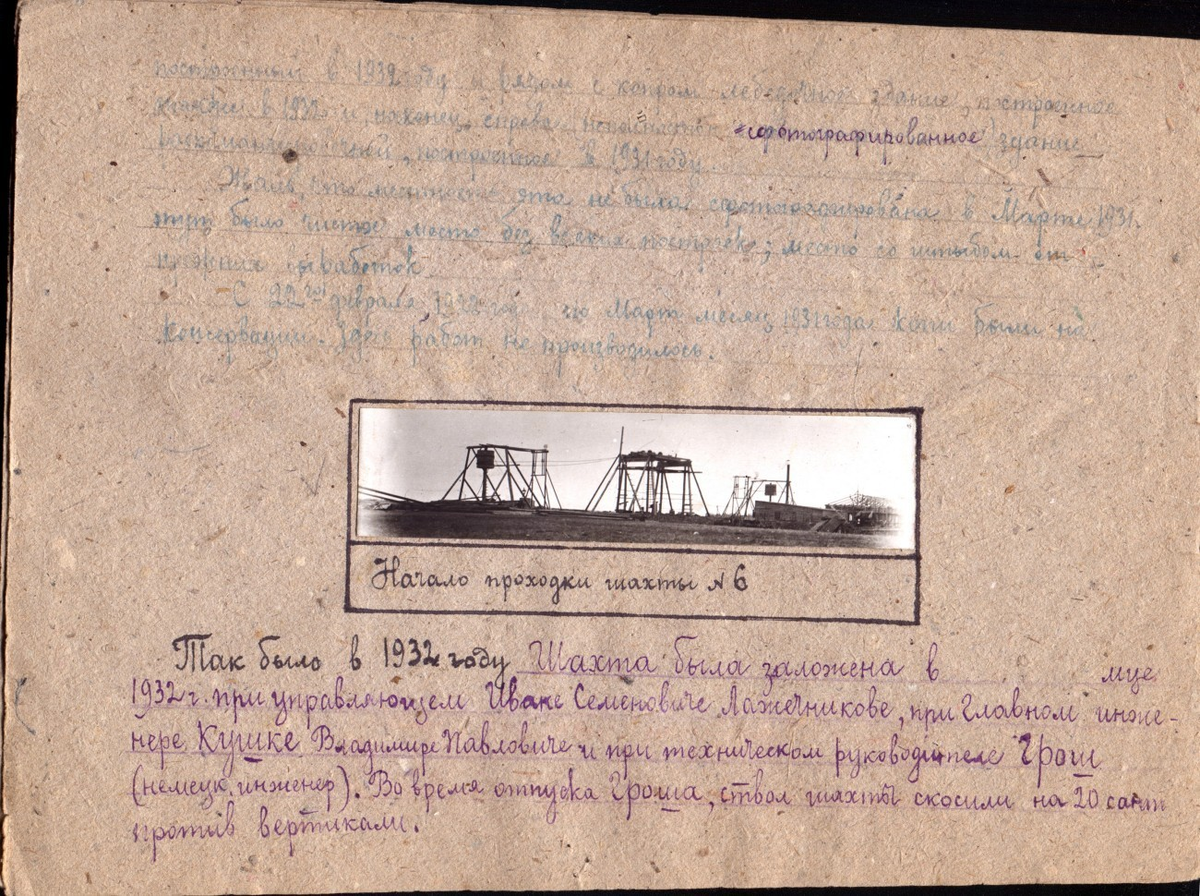 построенный в 1932 году и рядом с копром лебедочное здание, построенное
в 1932 и, наконец, справа сфотографированное здание
построенное в 1931 году
Жаль, что местность эта не была сфотографирована в Марте 1931.
тут было чистое место без всяких построек; место со штыбом от
прежних выработок
С 22го февраля по Март месяц 1931 года копи были на
консервации. Здесь работ не производилось.
Начало проходки шахты № 6
Так было в 1932 году Шахта была заложена в мце
1932 г. при управляющем Иване Семеновиче Лажечникове, при главном инже-
нере Кушке Владимире Павловиче и при техническом руководителе Грош
(немецк. инженер). Во время отпуска Гроша, ствол шахты скосили на 20 сант
против вертикали.